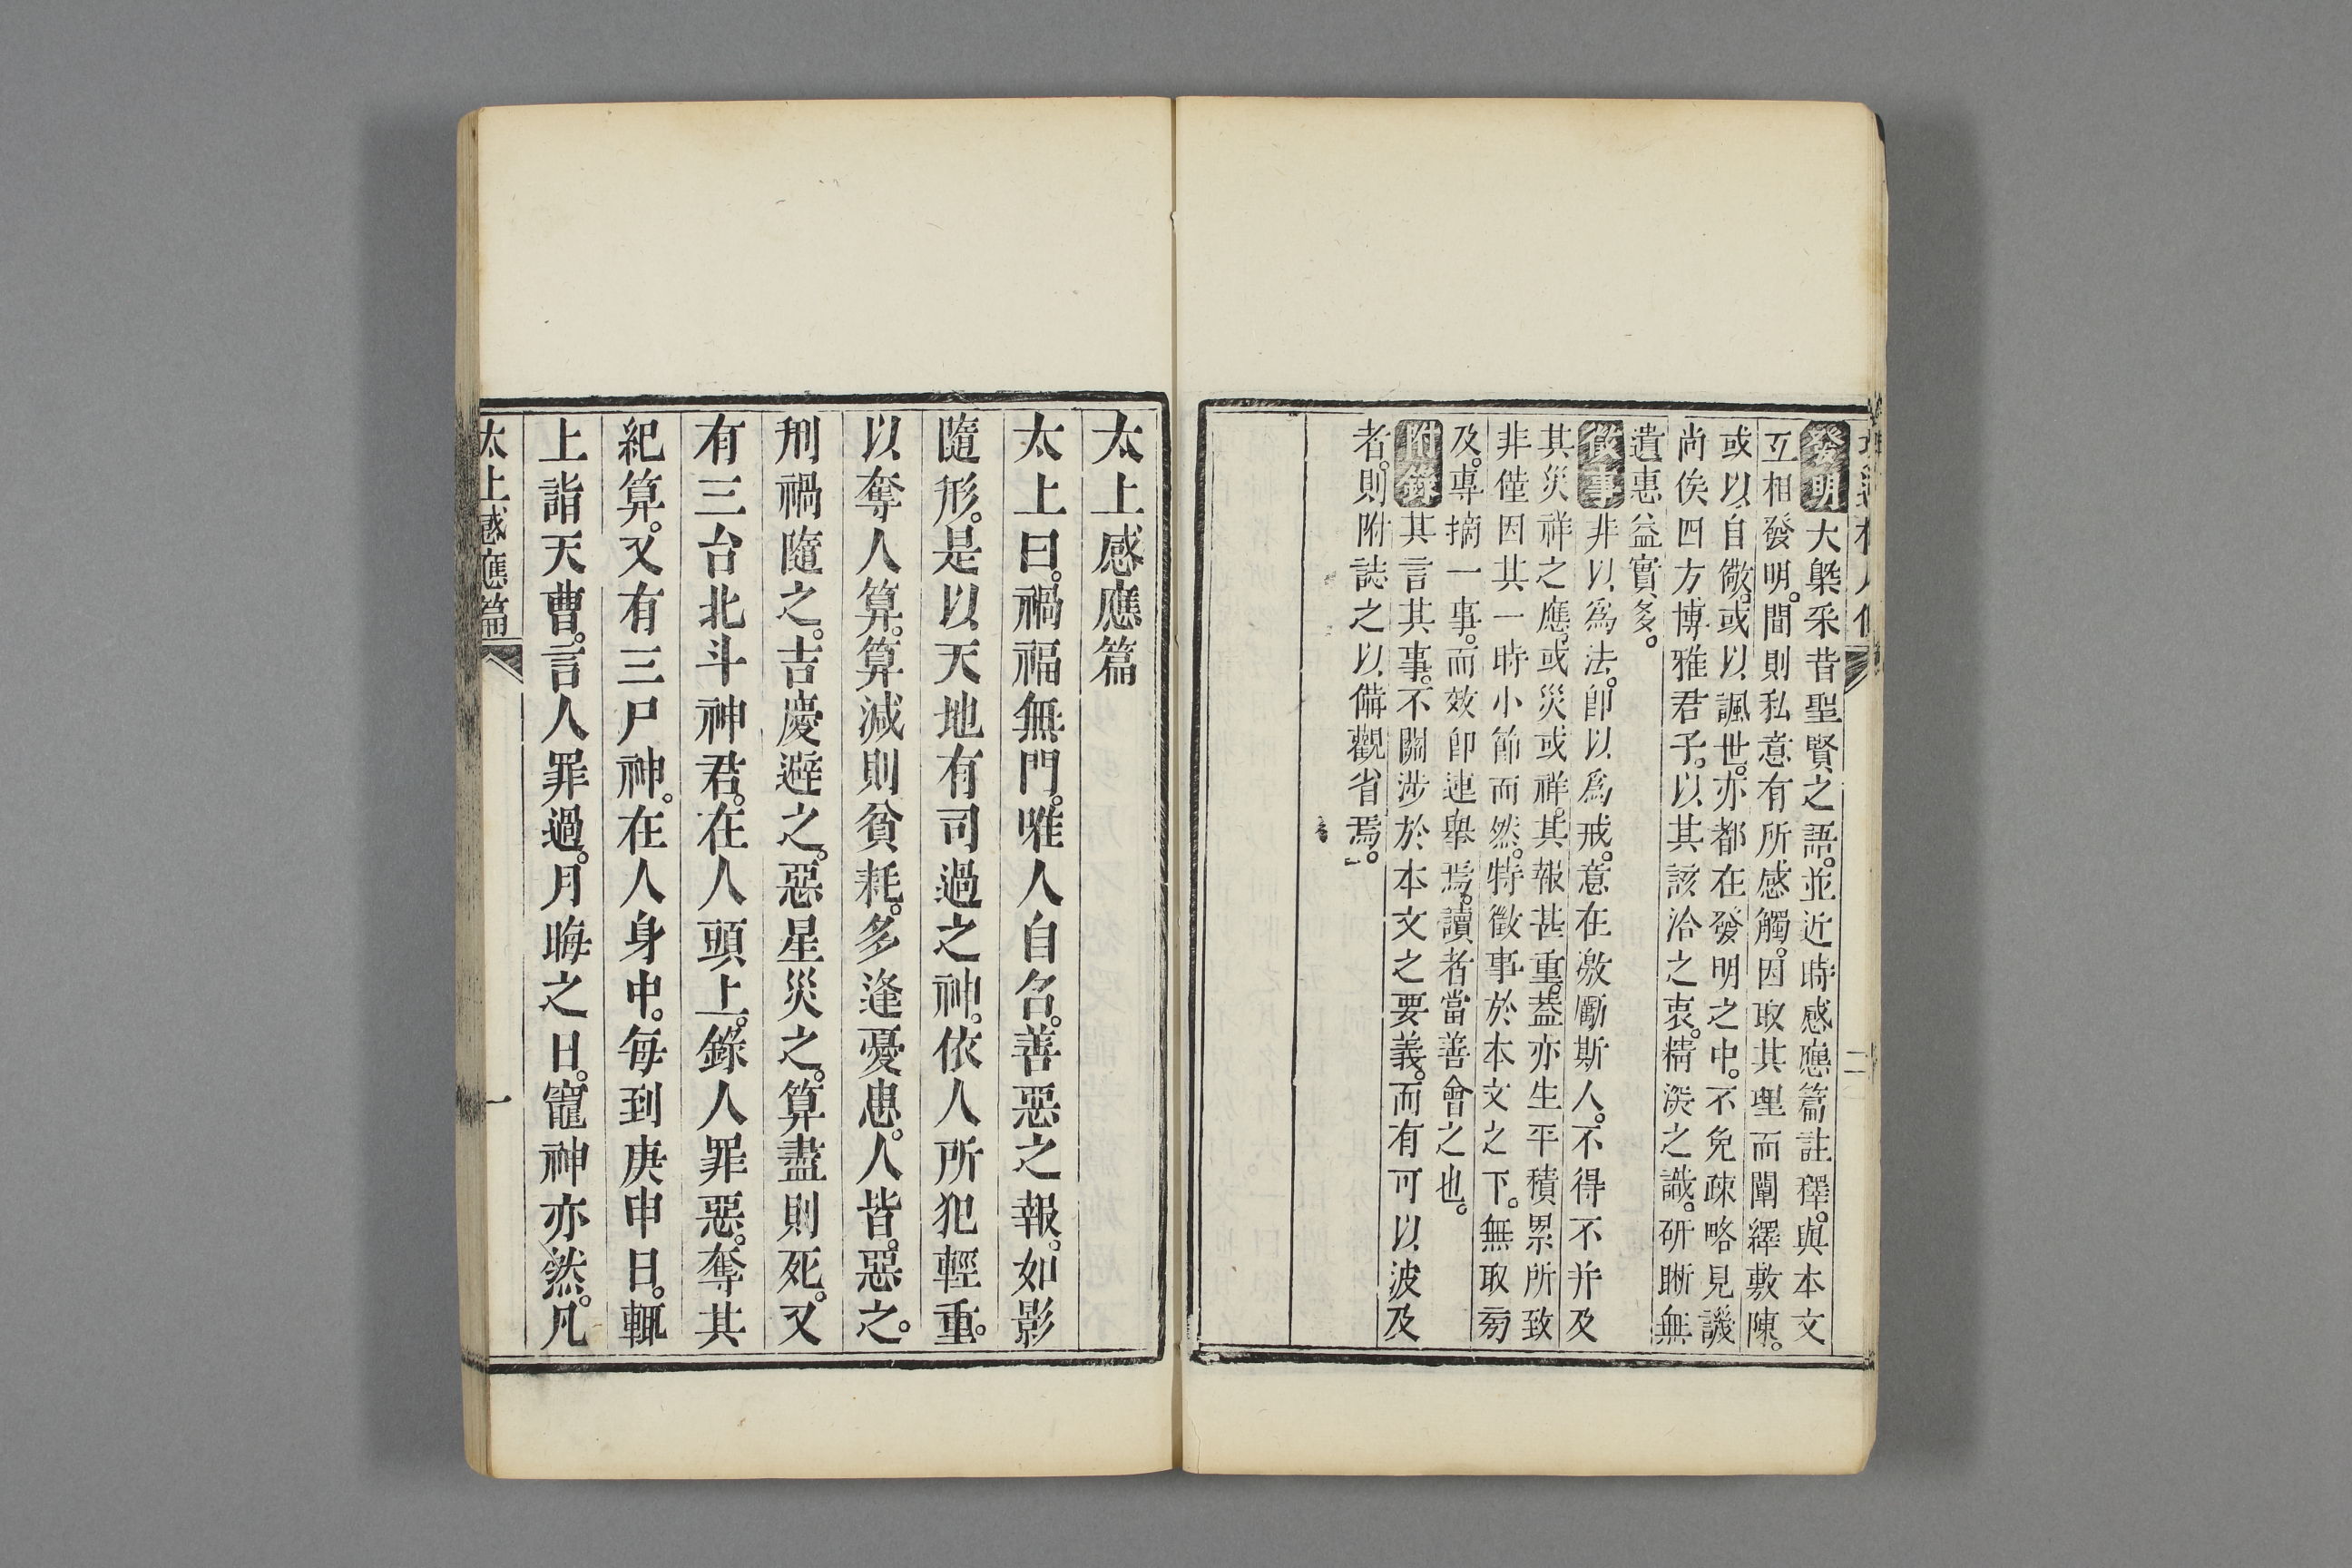 發明大槩采昔聖賢之語。並近時感應篇註釋。與本文
互相發明。間則私意有所感觸。因取其理而闡繹敷陳。
或以自儆。或以諷世。亦都在發明之中。不免疎略見譏
尚俟四方博雅君子。以其該洽之衷。精深之識。研晰無
遺惠益實多。
徵事非以爲法。卽以爲戒。意在激勵斯人。不得不并及
其災祥之應。或災或祥。其報甚重。葢亦生平積累所致
非僅因其一時小節而然。特徵事於本文之下。無取旁
及。專摘一事。而效卽連舉焉。讀者當善會之也。
附錄其言其事。不關涉於本文之要義。而有可以波及
者。則附誌之以備觀省焉。
二
太上感應篇
太上曰。禍福無門。唯人自召。善惡之報。如影
隨形。是以天地有司過之神。依人所犯輕重。
以奪人算。算減則貧耗。多逢憂患。人皆惡之。
刑禍隨之。吉慶避之。惡星災之。算盡則死。又
有三台北斗神君。在人頭上。錄人罪惡。奪其
紀算。又有三尸神。在人身中。每到庚申日。輒
上詣天曹。言人罪過。月晦之日。竈神亦然。凡
太上感應篇
一